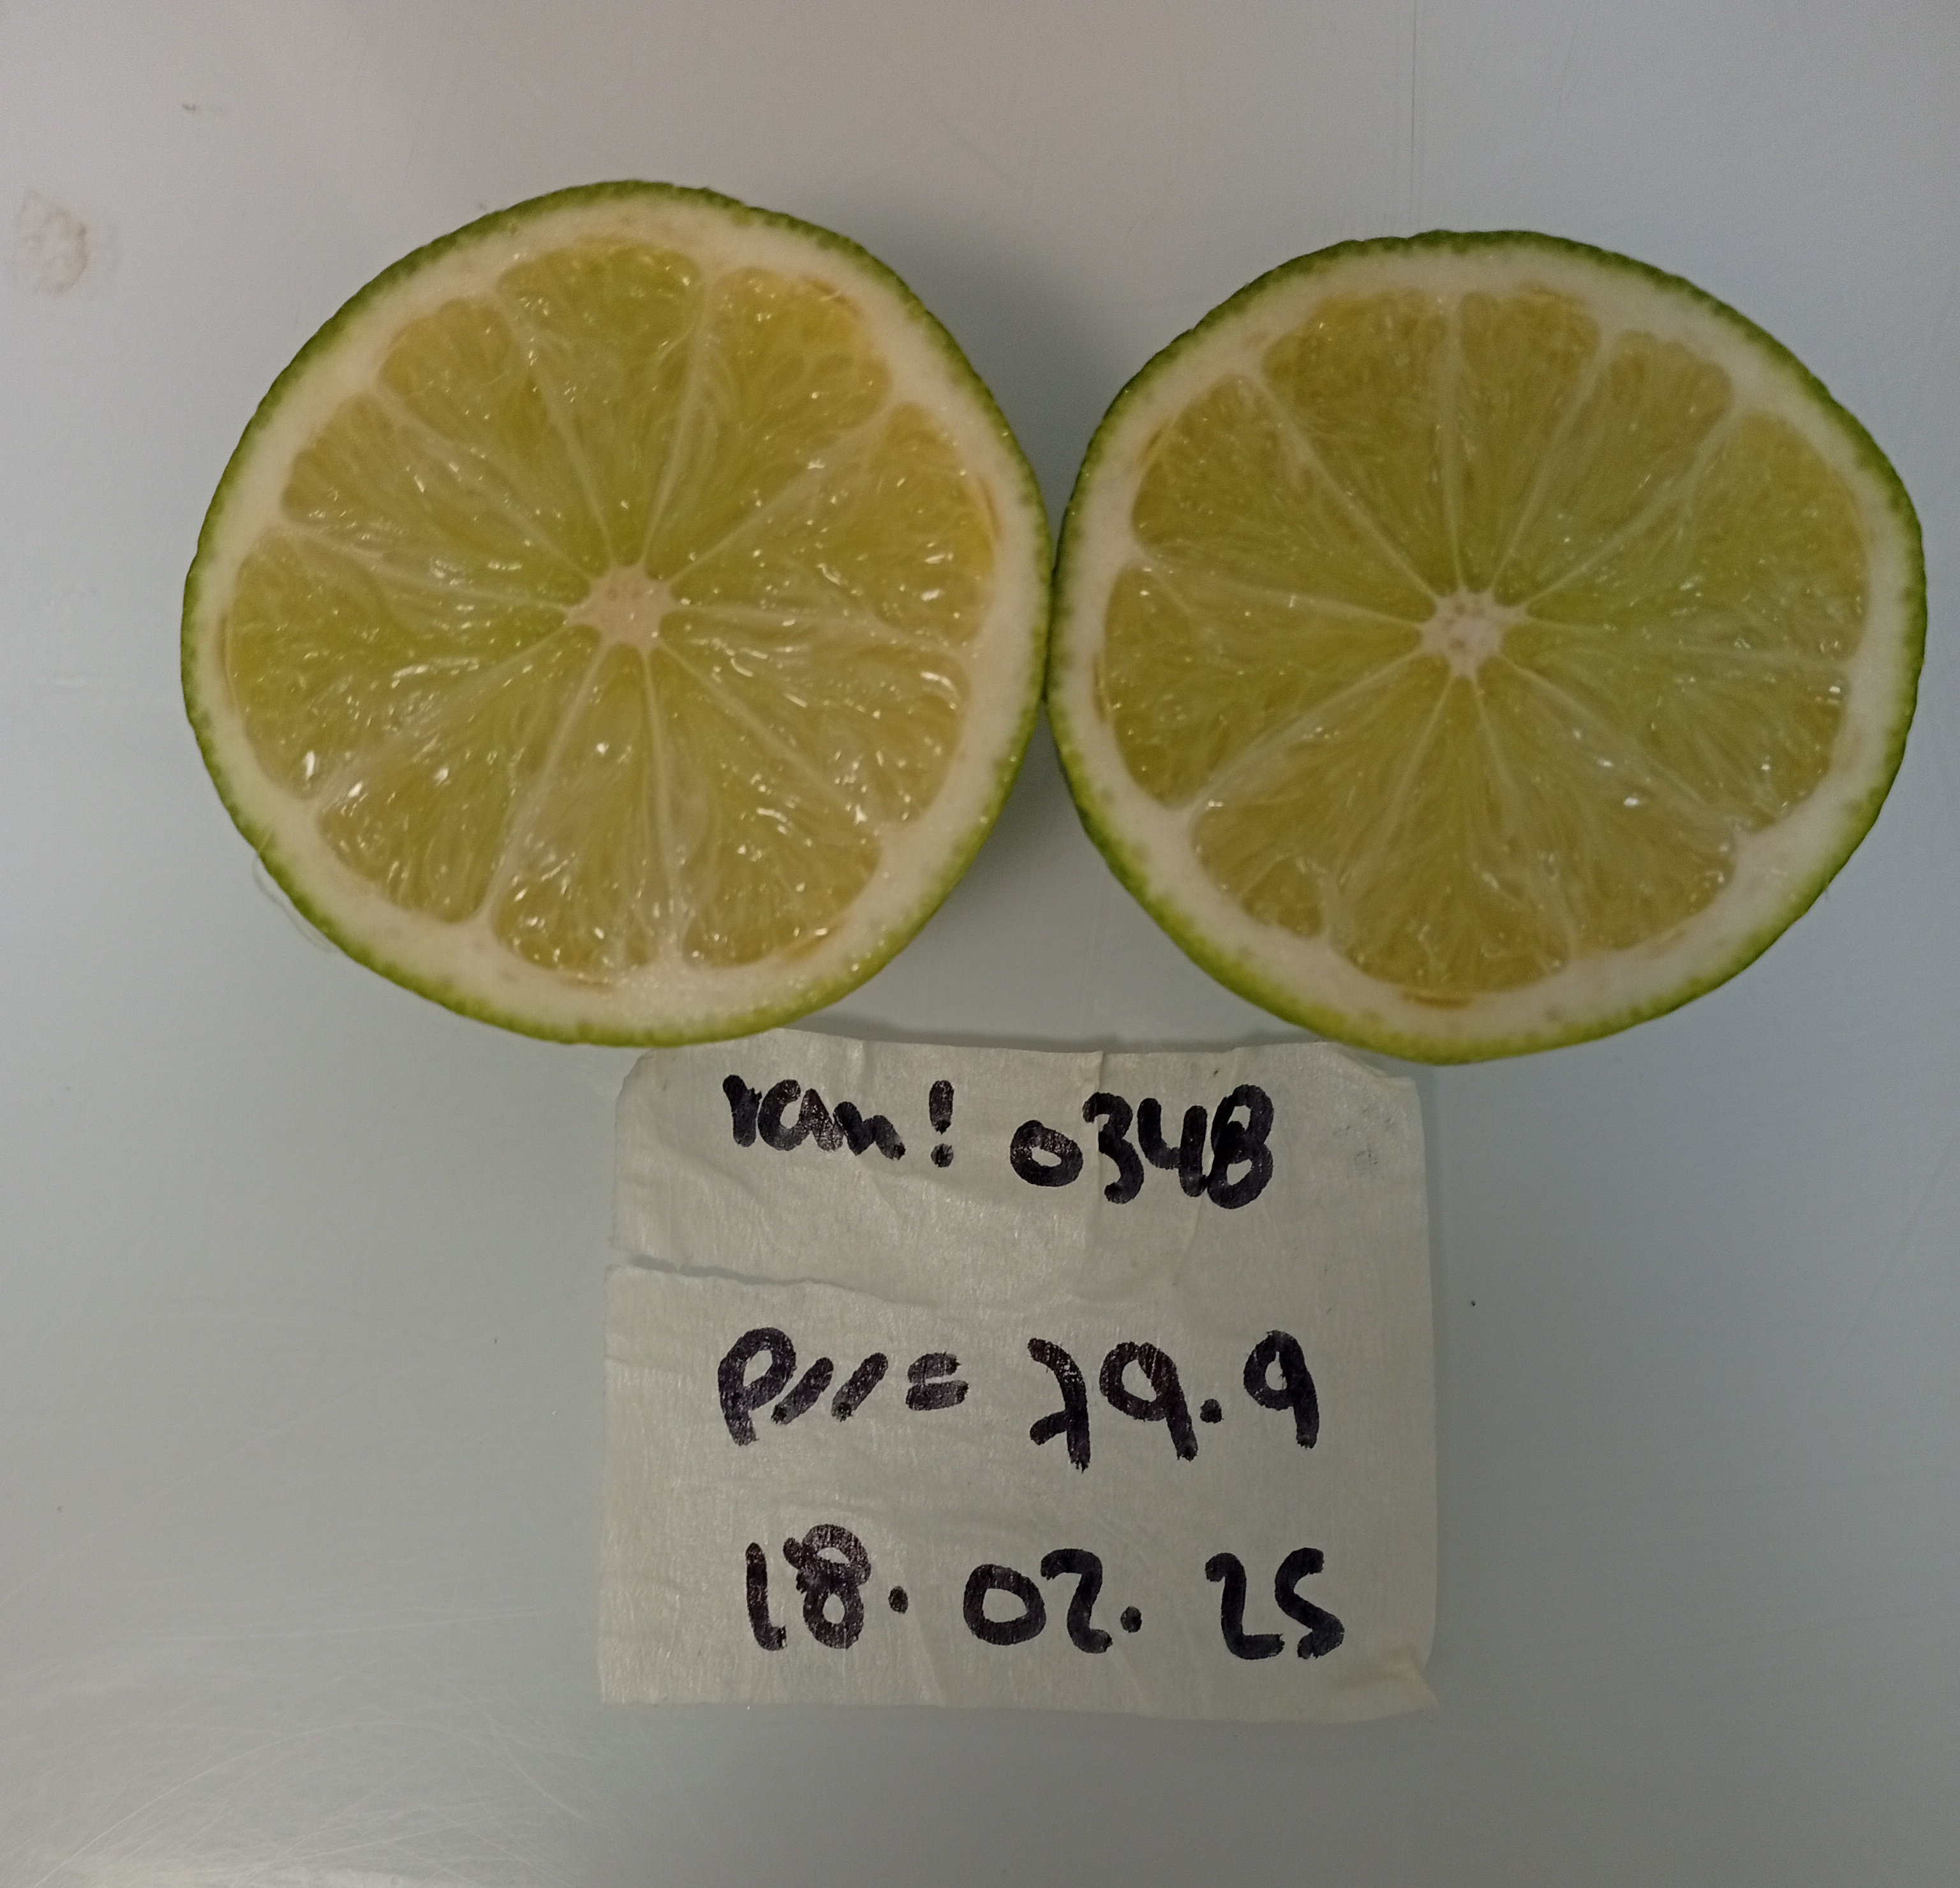 ram! 0348
P11= 79.9
18.02.25